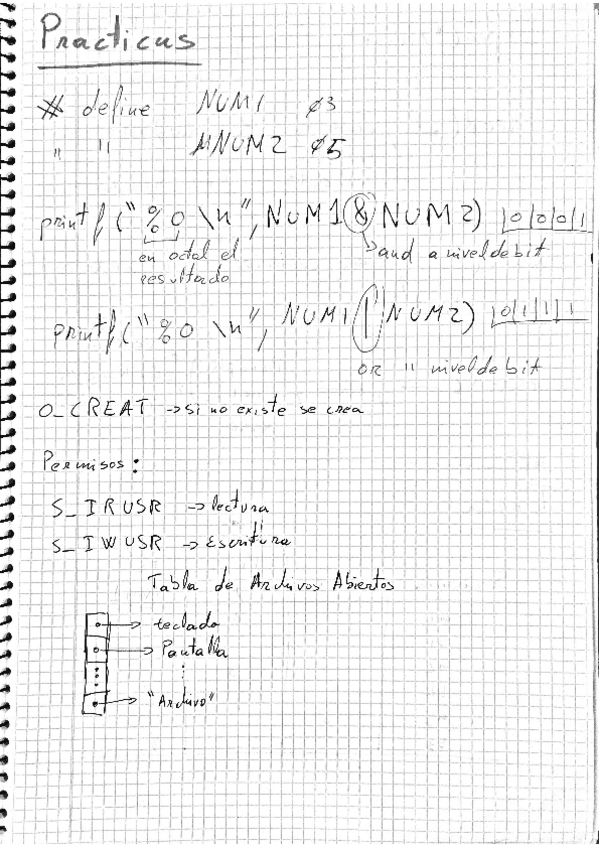 Practicas
# define NUM1 03
" " NUM2 05
printf("%o \n", NUM1 & NUM2) |0|0|0|1
en octal el → and a nivel de bit
resultado
printf("%o \n", NUM1 | NUM2) |0|1|1|1
or " nivel de bit
O_CREAT → si no existe se crea
Permisos:
S_IRUSR → lectura
S_IWUSR → Escritura
Tabla de Archivos Abiertos
→ teclado
→ Pantalla
⋮
→ "Archivo"